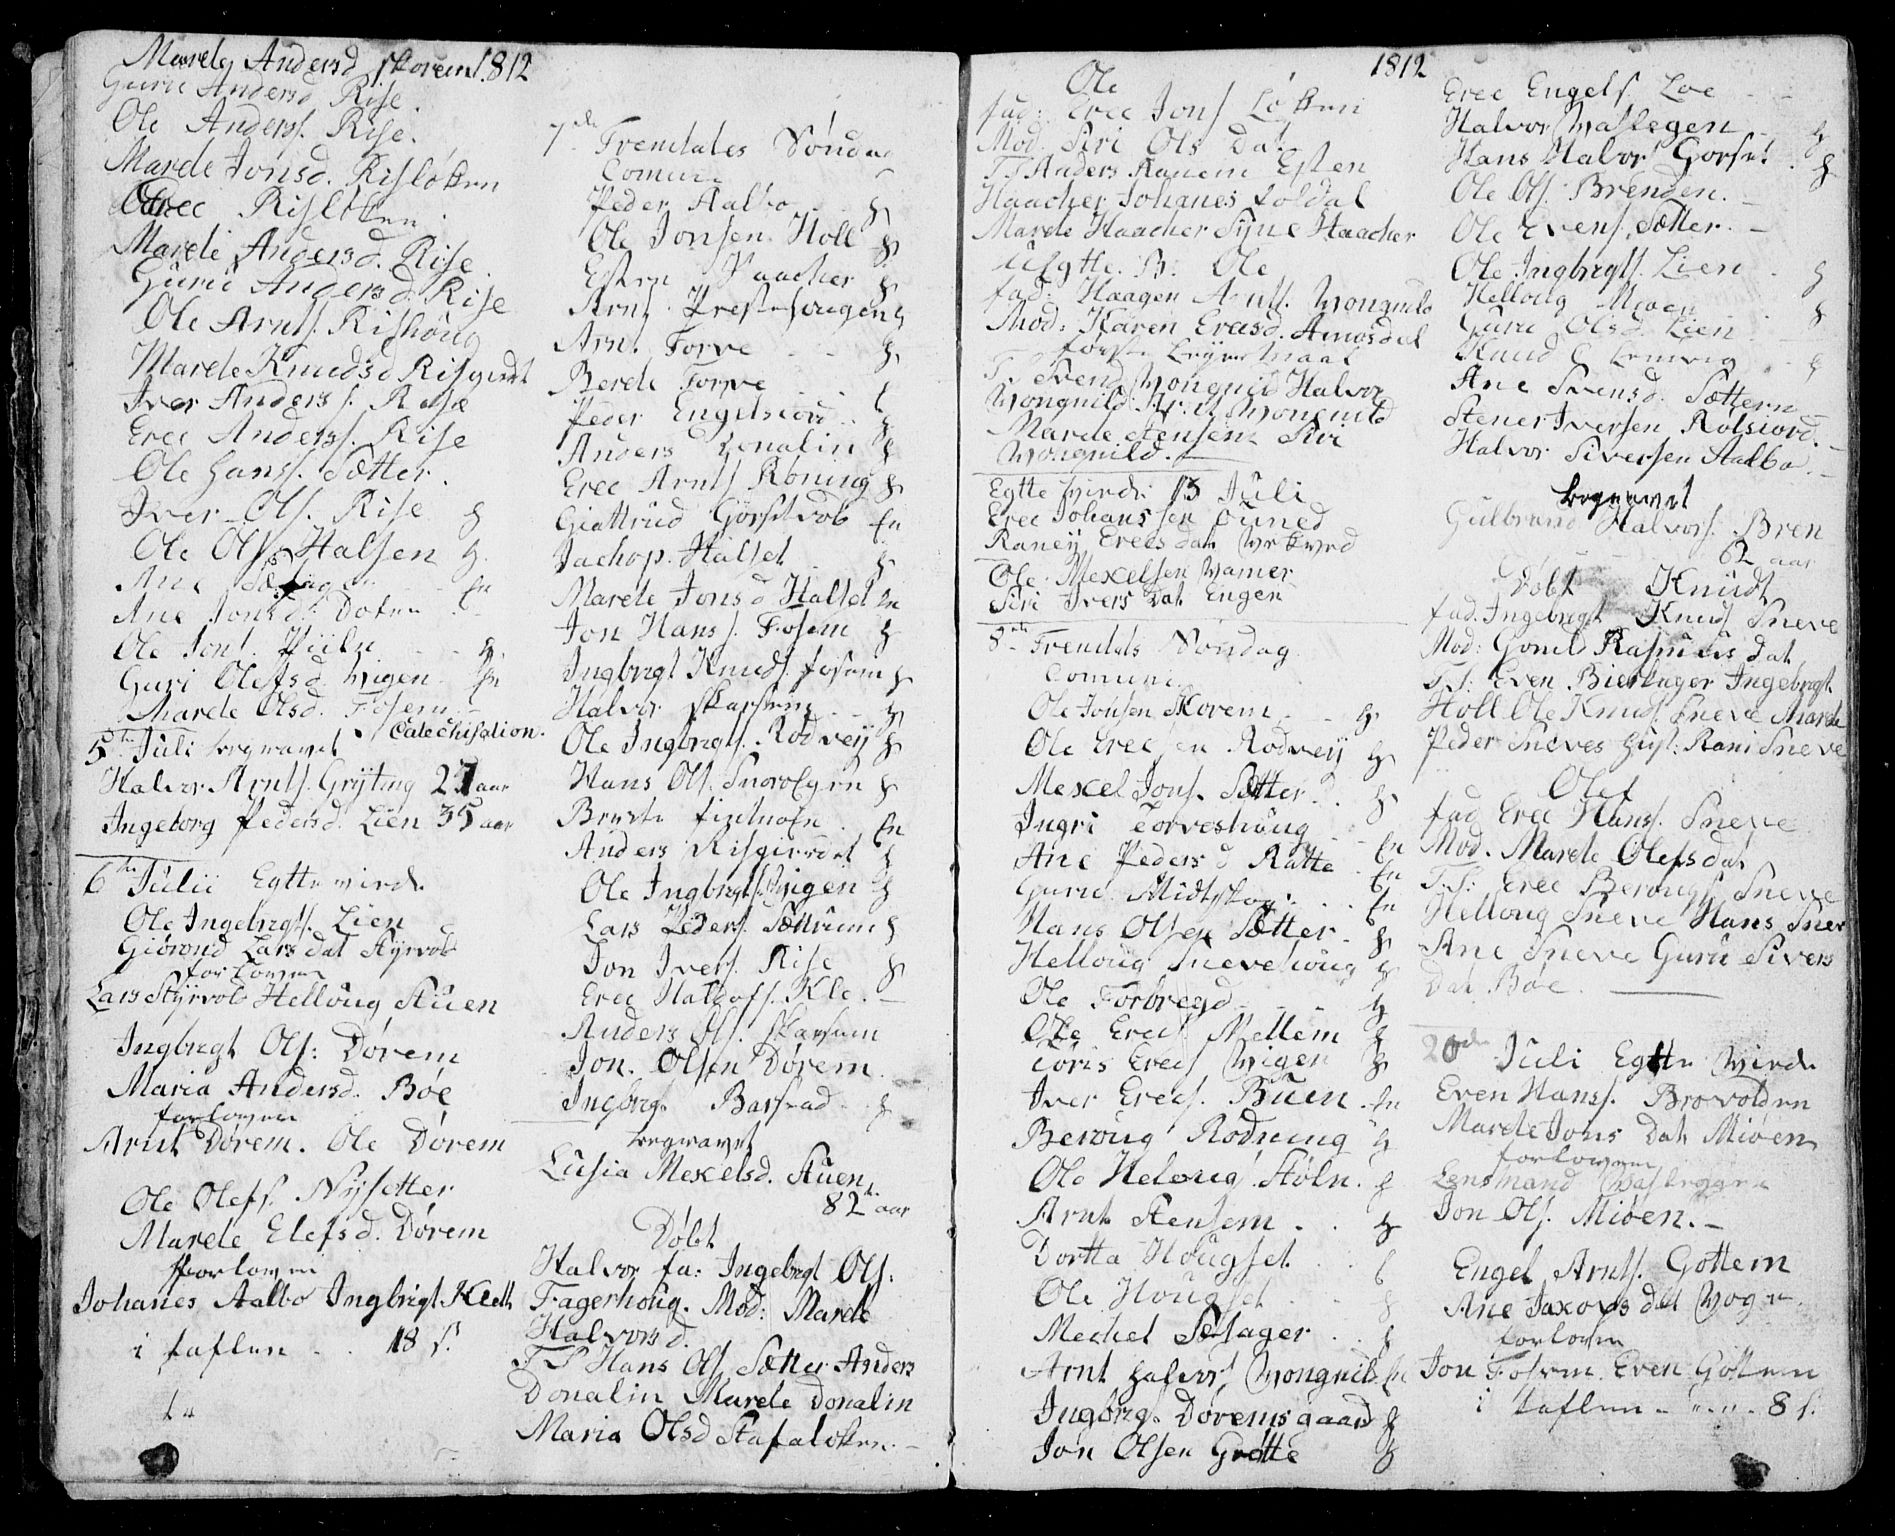 Marely Andersd Skorem 1812
Guru Andersd Rise.
Ole Anderss. Rise.
Marele Jonsd. Risløkken
Erec Risløken.
Mareli Andersd. Rise.
Guru Andersd. Rise
Ole Arnts. Rishøug
Marele Knudsd Risgierdt
Iver Anderss. Rise
Erec Anderss. Rise
Ole Hanss. Sætter.
Iver Ols. Rise
Ole Ols. Halsen
Ane
Ane Jonsd.
Ole Jons.
Guri Olefsd. Wigen
Marele Olsd. Fosem
Catechisation.
5te Juli begravet
Halvor Arnts. Gryting 27 aar
Ingeborg Pedersd. Lien 35 aar
6te Julii Egtte virde
Ole Ingebrgts. Lien
Giørond Lars dat Styrvold
forlover
Lars Styrvold Helloug Stuen
Ingbrigt Ols: Dørem
Maria Andersd. Bøe
forlover
Arnt Dørem. Ole Dørem
Ole Olefs. Nysetter
Marele Elefsd. Dørem
forlover
Johanes Aalbo Ingbrigt Kleth
i taflen . . 18 s.
7de Tremtates Søndag
Comuni
Peder Aalbo
Ole Jonsen Holl
Esten Haacher
Arnt
Arnt Torve
Berele Torve
Peder Engelsiord
Anders Donalin
Erec Arnts Roning
Giattrud Gorset
Jachop Halset
Marele Jonsd Halset
Jon Hanss. Fosem
Ingbrigt Knuds. fosem
Halvor Skarsem
Ole Ingbrigts. Rodvey
Hans Ols.
Anders Risgierdet
Ole Ingbrigts. Wigen
Lars Peders. Sættrum
Jon Ivers. Rise
Erec
Anders Ols. Skarsem
Jon Olsen Dørem
Ingbrgt Barstad
begravet
Lusia Mexelsd. Stuen
82 aar
Døbt
Halvor fa: Ingebrgt Ols.
Fagerhoug. Mod: Marele
Halvorsd.
T S Hans Ols. Sætter Anders
Donalin Marele Donalin
Maria Olsd
1812
Ole
fad: Erec Jons Løkken
Mod Siri Ols Dat
TS Anders Ranem Esten
Haacher Johanes foldal
Marele Haacher Syne Haacher
uegtte B. Ole
fad: Haagen Arnts. Wongnild
Mod: Karen Erecsd. Amosdal
første Leyermaal
TS Svend Wongnild Halvor
Wongnild Wongnild
Marele Stensem Siri
Wongnild.
Egtte virde 13 Juli
Erec Johansen Ouned
Raney Erecs dat
Ole Mexelsen Vamer
Siri Ivers Dat Engen
8de Tremtats Søndag
Comuni
Ole Jonsen Skorem
Ole Erecsen Rodvey
Mexel Jons. Sætter
Ingri Torveshaug
Ane Pedersd Ratte
Guru Midtskog
Hans Olsen Sætter
Helloug Snevehoug
Ole Forbregd
Ole Erecs. Mellem
Toris Erecs Wigen
Iver Erecs. Buen
Beroug Rodning
Ole Heloug Støln.
Arnt Stensem
Dortta Hougset
Ole Hougset
Mechel Sætager
Arnt Halvors Wongnild
Ingbrgt Doremsgaard
Jon Olsen Grøtte
Erec Engels. Loe
Halvor Waslegen
Hans Halvors Gorset
Ole Ols. Brenden.
Ole Evens. Sætter.
Ole Ingbrgts. Lien
Helloug Mioen
Guru Olsd. Lien
Knud
Ane Svensd. Sættern
Stener Iversen Rotsiord.
Halvor Siversen Aalbo.
begravet
Gulbrand Halvors. Bren
62 aar
Døbt Knudt
fad. Ingebrigt Knuds Sneve
Mod: Gonild Rasmus dat
TS: Even Bierkager Ingebrigt
Holl Ole Knuds. Sneve Marele
Peder Sneves hust: Rani Sneve
Olef
fad Erec Hans. Sneve
Mod. Marele Olefsdat
T.S: Erec Berougs Sneve
Helloug Sneve Hans Snev
Ane Sneve Guru Sivers
Dat Bøe.
20de Juli Egtte virde
Even Hanss. Brovolden
Marele Jons dat Mioen
forlover
Lensmand Waslegen
Jon Ols. Mioen.
Engel Arnts. Gottem
Ane Jaxops dat Wogn
forlover
Jon Fosem Even Gottem
i taflen 8 s.